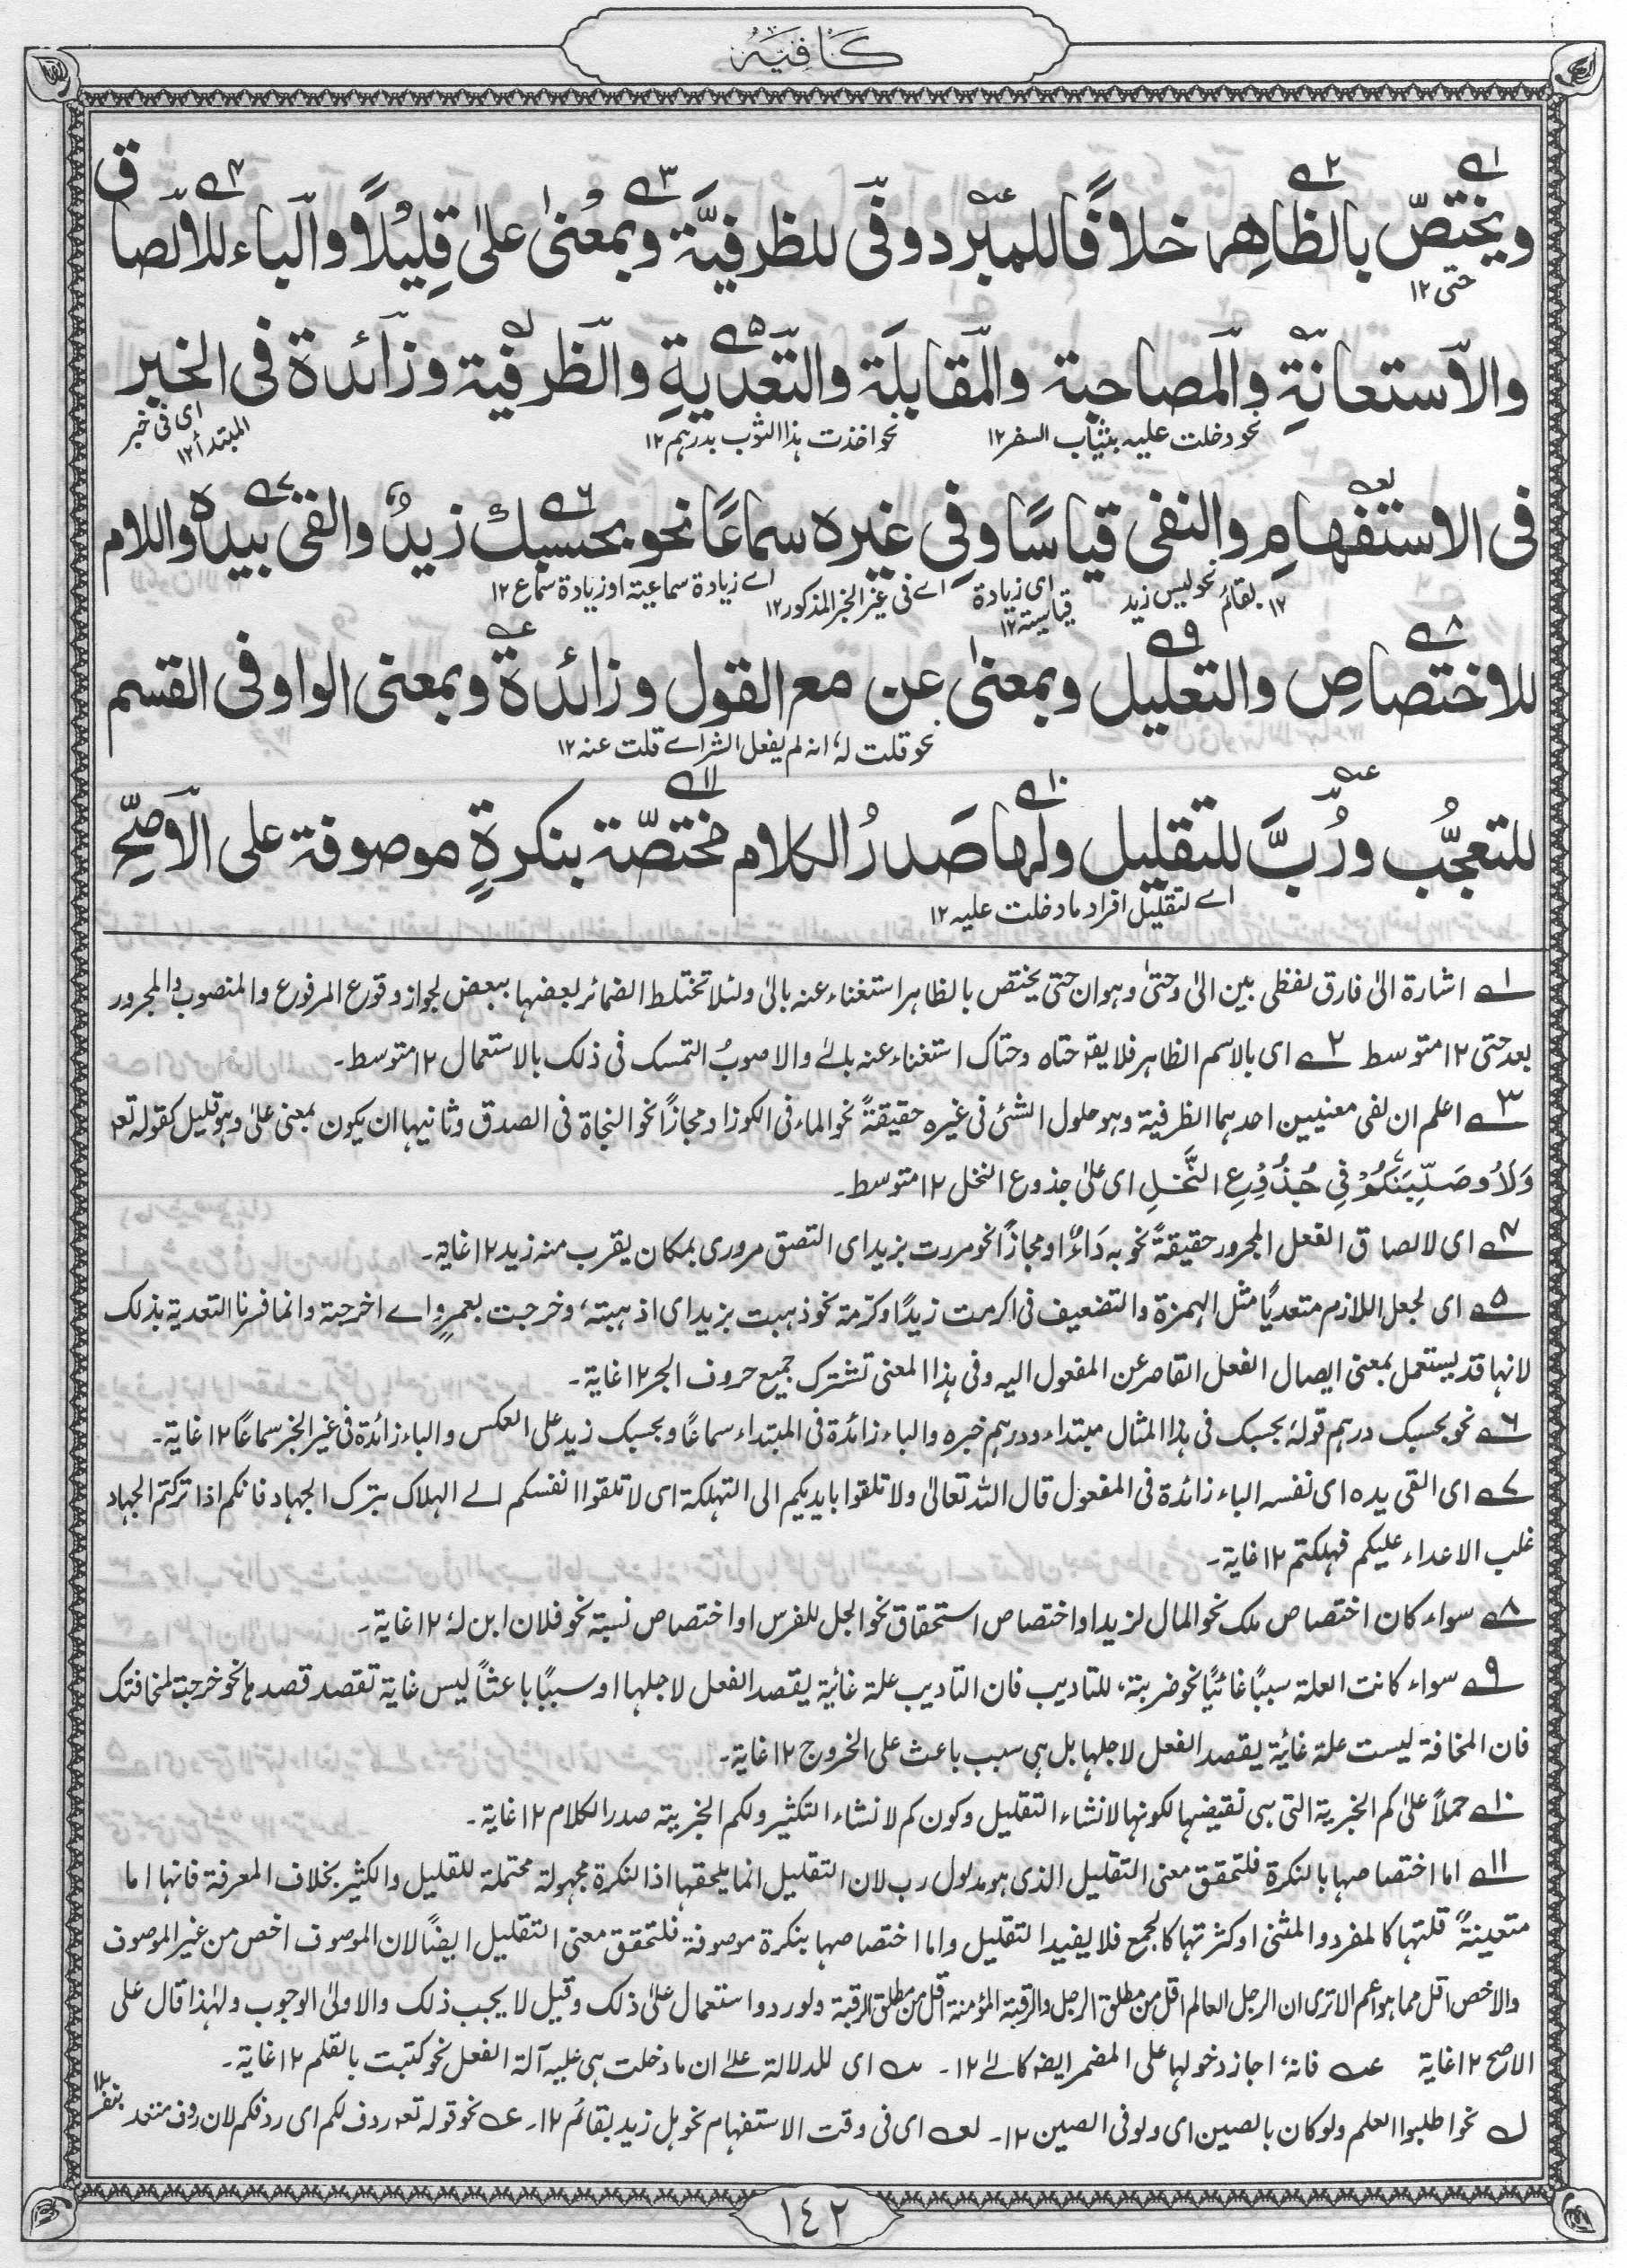 كَافِيَهْ
ويختصّ بالظاهِر خلافًا للمبرّد وفى للظرفيَّة وبمعْنٰى علىٰ قِلِيْلًا والباء للالصاق
حتى ١٢
والاستعانةِ والمصاحبة والمقابلَة والتّعديةِ والظرفية وزائدة فى الخبر
نحو دخلت عليه بثياب السفر ١٢ نحو اخذت هذا الثوب بدرهم ١٢ اى فى خبر المبتدأ ١٢
فى الاستفهامِ والنفى قياسًا وفى غيره سماعًا نحو بحسبك زيدٌ والقى بيده واللام
نحو ليس زيد بقائم ١٢ اى زيادة قياسية ١٢ اے فى غير الخبر المذكور ١٢ اے زيادة سماعية او زيادة سماع ١٢
للاختصاصِ والتعليل وبمعنىٰ عن مع القول وزائدة وبمعنى الواو فى القسم
نحو قلت لهٗ انه لم يفعل الشر اے قلت عنه ١٢
للتعجُّب ورُبَّ للتقليل ولها صَدرُ الكلام مختصّة بنكرةٍ موصوفة على الاصَحِّ
اے لتقليل افراد ما دخلت عليه ١٢
١ے اشارة الىٰ فارق لفظى بين الىٰ وحتىٰ وهو ان حتىٰ يختص بالظاهر استغناء عنه بالىٰ ولئلا تختلط الضمائر بعضها ببعض لجواز وقوع المرفوع والمنصوب والمجرور
بعد حتى ١٢ متوسط ٢ے اى بالاسم الظاهر فلا يقه حتاه وحتاك استغناء عنه بالىٰ والاصوبُ التمسك فى ذلك بالاستعمال ١٢ متوسط۔
٣ے اعلم ان لفى معنيين احدهما الظرفية وهو حلول الشئ فى غيره حقيقةً نحو الماء فى الكوز او مجازًا نحو النجاة فى الصدق وثانيها ان يكون بمعنى علىٰ وهو قليل كقوله تعه
وَلَاُوصَلِّبَنَّكُمْ فِى جُذُوْعِ النَّخْلِ اى علىٰ جذوع النخل ١٢ متوسط۔
٤ے اى لالصاق الفعل المجرور حقيقةً نحو به دَاءٌ او مجازًا نحو مررت بزيد اى التصق مرورى بمكان يقرب منه زيد ١٢ غاية۔
٥ے اى لجعل اللازم متعديًا مثل الهمزة والتضعيف فى اكرمت زيدًا وكرمته نحو ذهبت بزيد اى اذهبته، وخرجت بعمرٍو اے اخرجته وانما فسرنا التعدية بذلك
لانها قد يستعمل بمعنى ايصال الفعل القاصر عن المفعول اليه وفى هذا المعنى تشترك جميع حروف الجر ١٢ غاية۔
٦ے نحو بحسبك درهم قولهٗ بحسبك فى هذا المثال مبتداء ودرهم خبره والباء زائدة فى المبتداء سماعًا وبحسبك زيد على العكس والباء زائدة فى غير الخبر سماعًا ١٢ غاية۔
٧ے اى القى يده اى نفسه الباء زائدة فى المفعول قال اللّٰه تعالىٰ ولا تلقوا بايديكم الى التهلكة اى لا تلقوا انفسكم الے الهلاك بترك الجهاد فانكم اذا تركتم الجهاد
غلب الاعداء عليكم فهلكتم ١٢ غاية۔
٨ے سواء كان اختصاص ملك نحو المال لزيد او اختصاص استحقاق نحو الجل للفرس او اختصاص نسبة نحو فلان ابن لهٗ ١٢ غاية۔
٩ے سواء كانت العلة سببًا غائيًا نحو ضربتهٗ للتاديب فان التاديب علة غائية يقصد الفعل لاجلها او سببًا باعثًا ليس غاية تقصد قصدها نحو خرجت لمخافتك
فان المخافة ليست علة غائية يقصد الفعل لاجلها بل هى سبب باعث على الخروج ١٢ غاية۔
١٠ے حملاً علىٰ كم الخبرية التى هى نقيضها لكونها لانشاء التقليل وكون كم لانشاء التكثير ولكم الخبرية صدر الكلام ١٢ غاية۔
١١ے اما اختصاصها بالنكرة فلتحقق معنى التقليل الذى هو مدلول رب لان التقليل انما يلحقها اذ النكرة مجهولة محتملة للقليل والكثير بخلاف المعرفة فانها اما
متعينة قلتها كالمفرد والمثنى او كثرتها كالجمع فلا يفيد التقليل واما اختصاصها بنكرة موصوفة فلتحقق معنى التقليل ايضًا لان الموصوف اخص من غير الموصوف
والاخص اقل مما هو اعم الا ترى ان الرجل العالم اقل من مطلق الرجل والرقبة المؤمنة اقل من مطلق الرقبة ولورود استعمال علىٰ ذلك وقيل لا يجب ذلك والاولىٰ الوجوب ولهٰذا قال على
الاصح ١٢ غاية عــه فانهٗ اجاز دخولها على المضمر ايضه كالىٰ ١٢۔ ــه اى للدلالة علىٰ ان ما دخلت هى عليه آلة الفعل نحو كتبت بالقلم ١٢ غاية۔
لــه نحو اطلبوا العلم ولو كان بالصين اى ولو فى الصين ١٢۔ لعــه اى فى وقت الاستفهام نحو هل زيد بقائم ١٢۔ عــه نحو قوله تعه ردف لكم اى ردفكم لان ردف متعد بنفسه ١٢
١٤٢